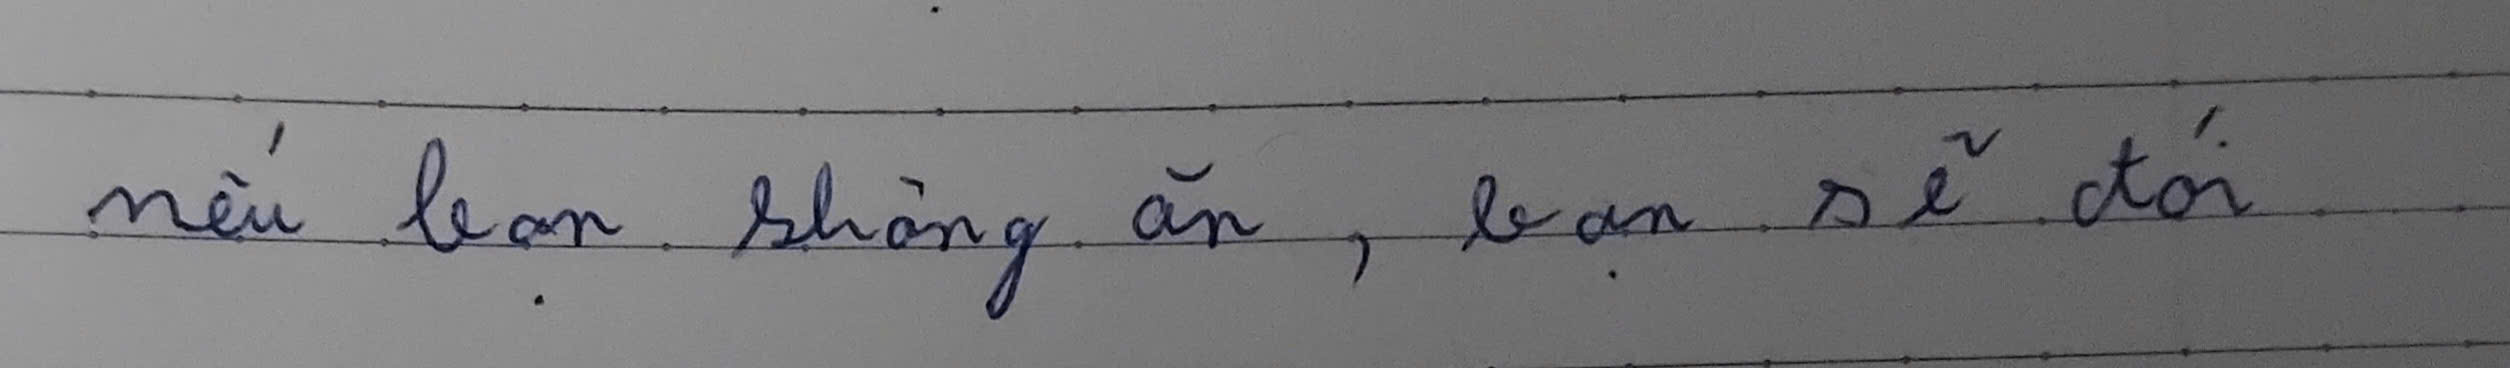 nếu bạn không ăn, bạn sẽ đói